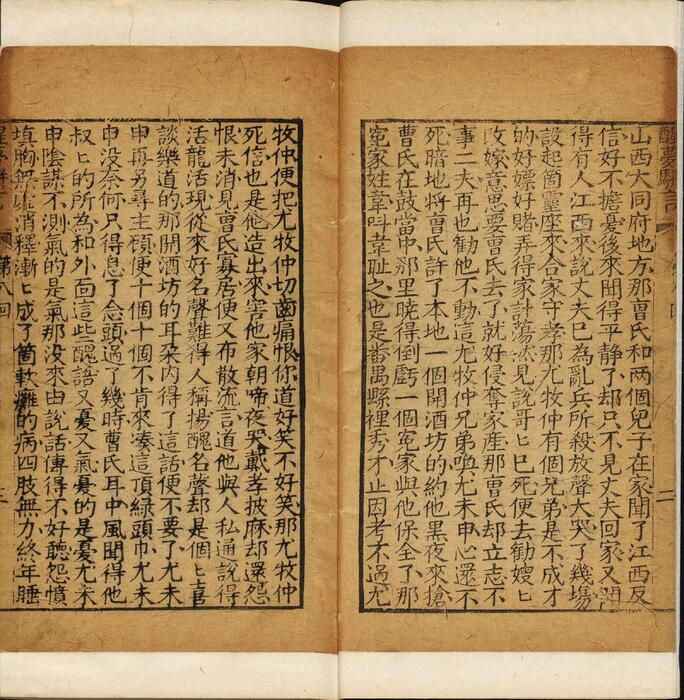 醒夢駢言
二
山西大同府地方那曹氏和兩個兒子在家聞了江西反
信好不擔憂後來聞得平靜了却只不見丈夫回家又聞
得有人江西來說丈夫已為亂兵所殺放聲大哭了幾塲
設起箇靈座來合家守孝那尤牧仲有個兄弟是不成才
的好嫖好賭弄得家計蕩然見說哥匕已死便去勸嫂匕
改嫁意思要曹氏去了就好侵奪家産那曹氏却立志不
事二夫再也勸他不動這尤牧仲兄弟喚尤未申心還不
死暗地將曹氏許了本地一個開酒坊的約他黑夜來搶
曹氏在鼓當中鄰里曉得倒虧一個寃家與他保全了那
寃家姓韋呌韋耻之也是番禺縣裡秀才止因考不過尤
牧仲便把尤牧仲切齒痛恨你道好笑不好笑那尤牧仲
死信也是他造出來害他家朝啼夜哭戴孝披麻却還怨
恨未消見曹氏寡居便又布散流言道他與人私通說得
活龍活現從來好名聲難得人稱揚醜名聲却是個匕喜
談樂道的那開酒坊的耳朶内得了這話便不要了尤未
申再另尋主顧便十個十個不肯來湊這頂綠頭巾尤未
申沒奈何只得息了念頭過了幾時曹氏耳中風聞得他
叔匕的所為和外面這些醜語又憂又氣憂的是憂尤未
申陰謀不測氣的是氣那沒來由說話傳得不好聽怨憤
填胸無處消釋漸匕成了箇軟癱的病四肢無力終年睡
第八回
三